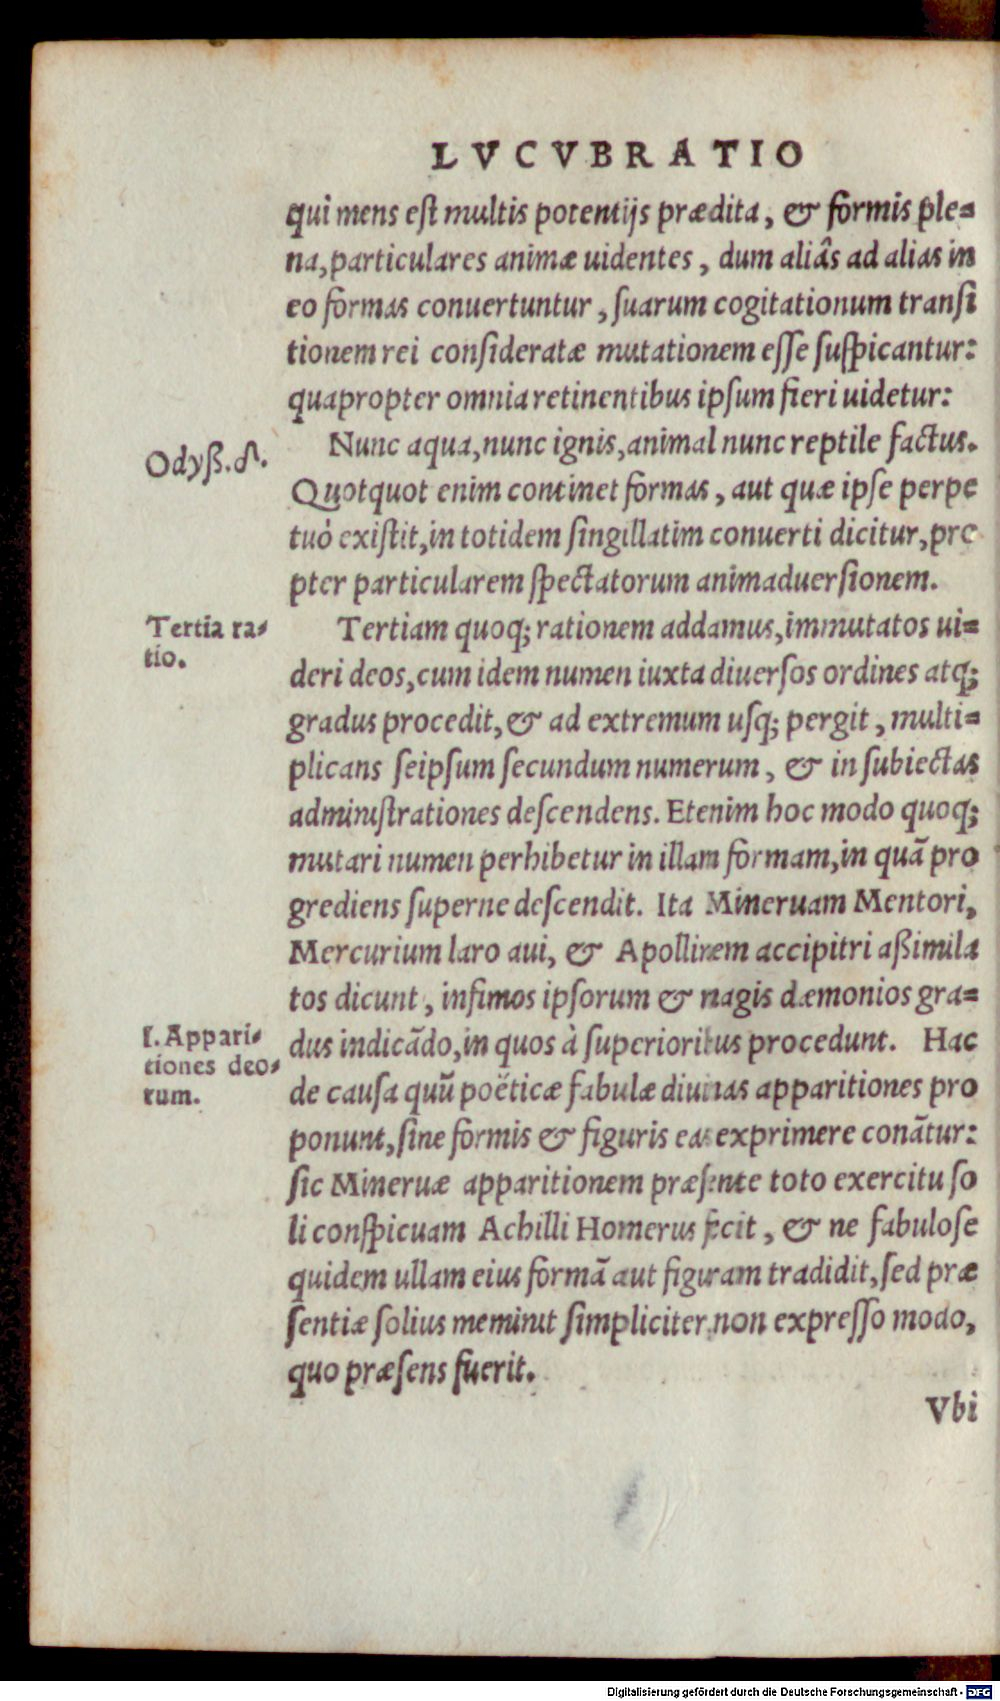 LVCVBRATIO
qui mens est multis potentijs prædita, & formis ple=
na, particulares animæ uidentes, dum aliâs ad alias in
eo formas conuertuntur, suarum cogitationum transi
tionem rei consideratæ mutationem esse suspicantur:
quapropter omnia retinentibus ipsum fieri uidetur:
Nunc aqua, nunc ignis, animal nunc reptile factus.
Odyß. δ.
Quotquot enim continet formas, aut quæ ipse perpe
tuò existit, in totidem singillatim conuerti dicitur, pro
pter particularem spectatorum animaduersionem.
Tertia ra=
tio.
Tertiam quoq; rationem addamus, immutatos ui=
deri deos, cum idem numen iuxta diuersos ordines atq;
gradus procedit, & ad extremum usq; pergit, multi=
plicans seipsum secundum numerum, & in subiectas
administrationes descendens. Etenim hoc modo quoq;
mutari numen perhibetur in illam formam, in quā pro
grediens superne descendit. Ita Mineruam Mentori,
Mercurium laro aui, & Apollinem accipitri aßimila
tos dicunt, infimos ipsorum & magis dæmonios gra=
I. Appari=
tiones deo=
rum.
dus indicādo, in quos à superioribus procedunt. Hac
de causa quū poëticæ fabulæ diuinas apparitiones pro
ponunt, sine formis & figuris eas exprimere conātur:
sic Mineruæ apparitionem præsente toto exercitu so
li conspicuam Achilli Homerus fecit, & ne fabulose
quidem ullam eius formā aut figuram tradidit, sed præ
sentiæ solius meminit simpliciter non expresso modo,
quo præsens fuerit.
Vbi
Digitalisierung gefördert durch die Deutsche Forschungsgemeinschaft - DFG